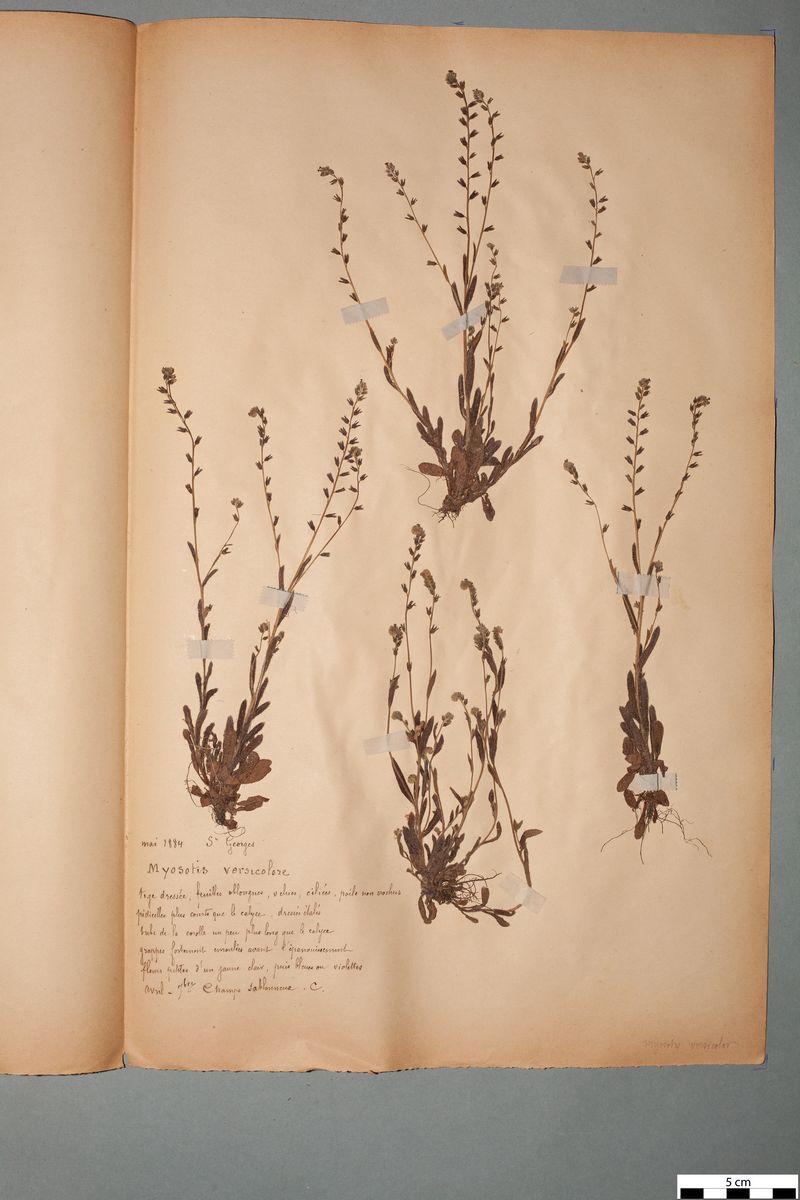 mai 1884 St Georges
Myosotis versicolore
Tige dressée, feuilles oblongues, velues, ciliées, poils non crochus
pédicelles plus courts que le calyce. dressés étalés
tube de la corolle un peu plus long que le calyce
grappes fortement enroulées avant l'épanouissement
fleurs petites d'un jaune clair, puis bleues ou violettes
Avril - 7bre Champs sablonneux. C.
Myosotis versicolor
5 cm